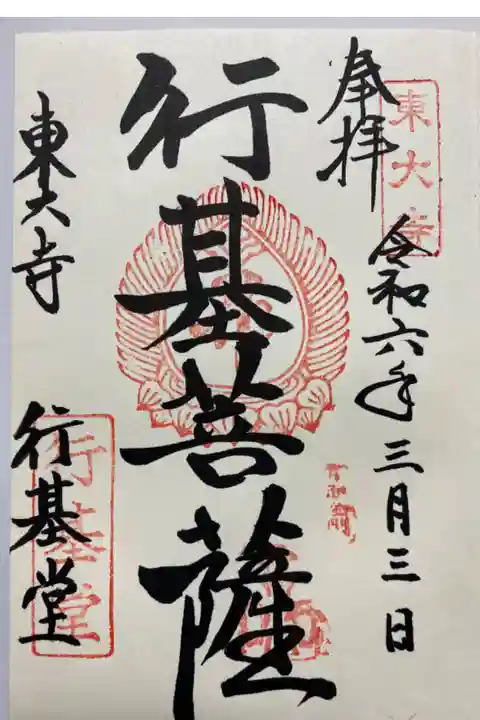 東大寺
奉拝
令和六年三月三日
行基菩薩
東大寺
行基堂
行基堂